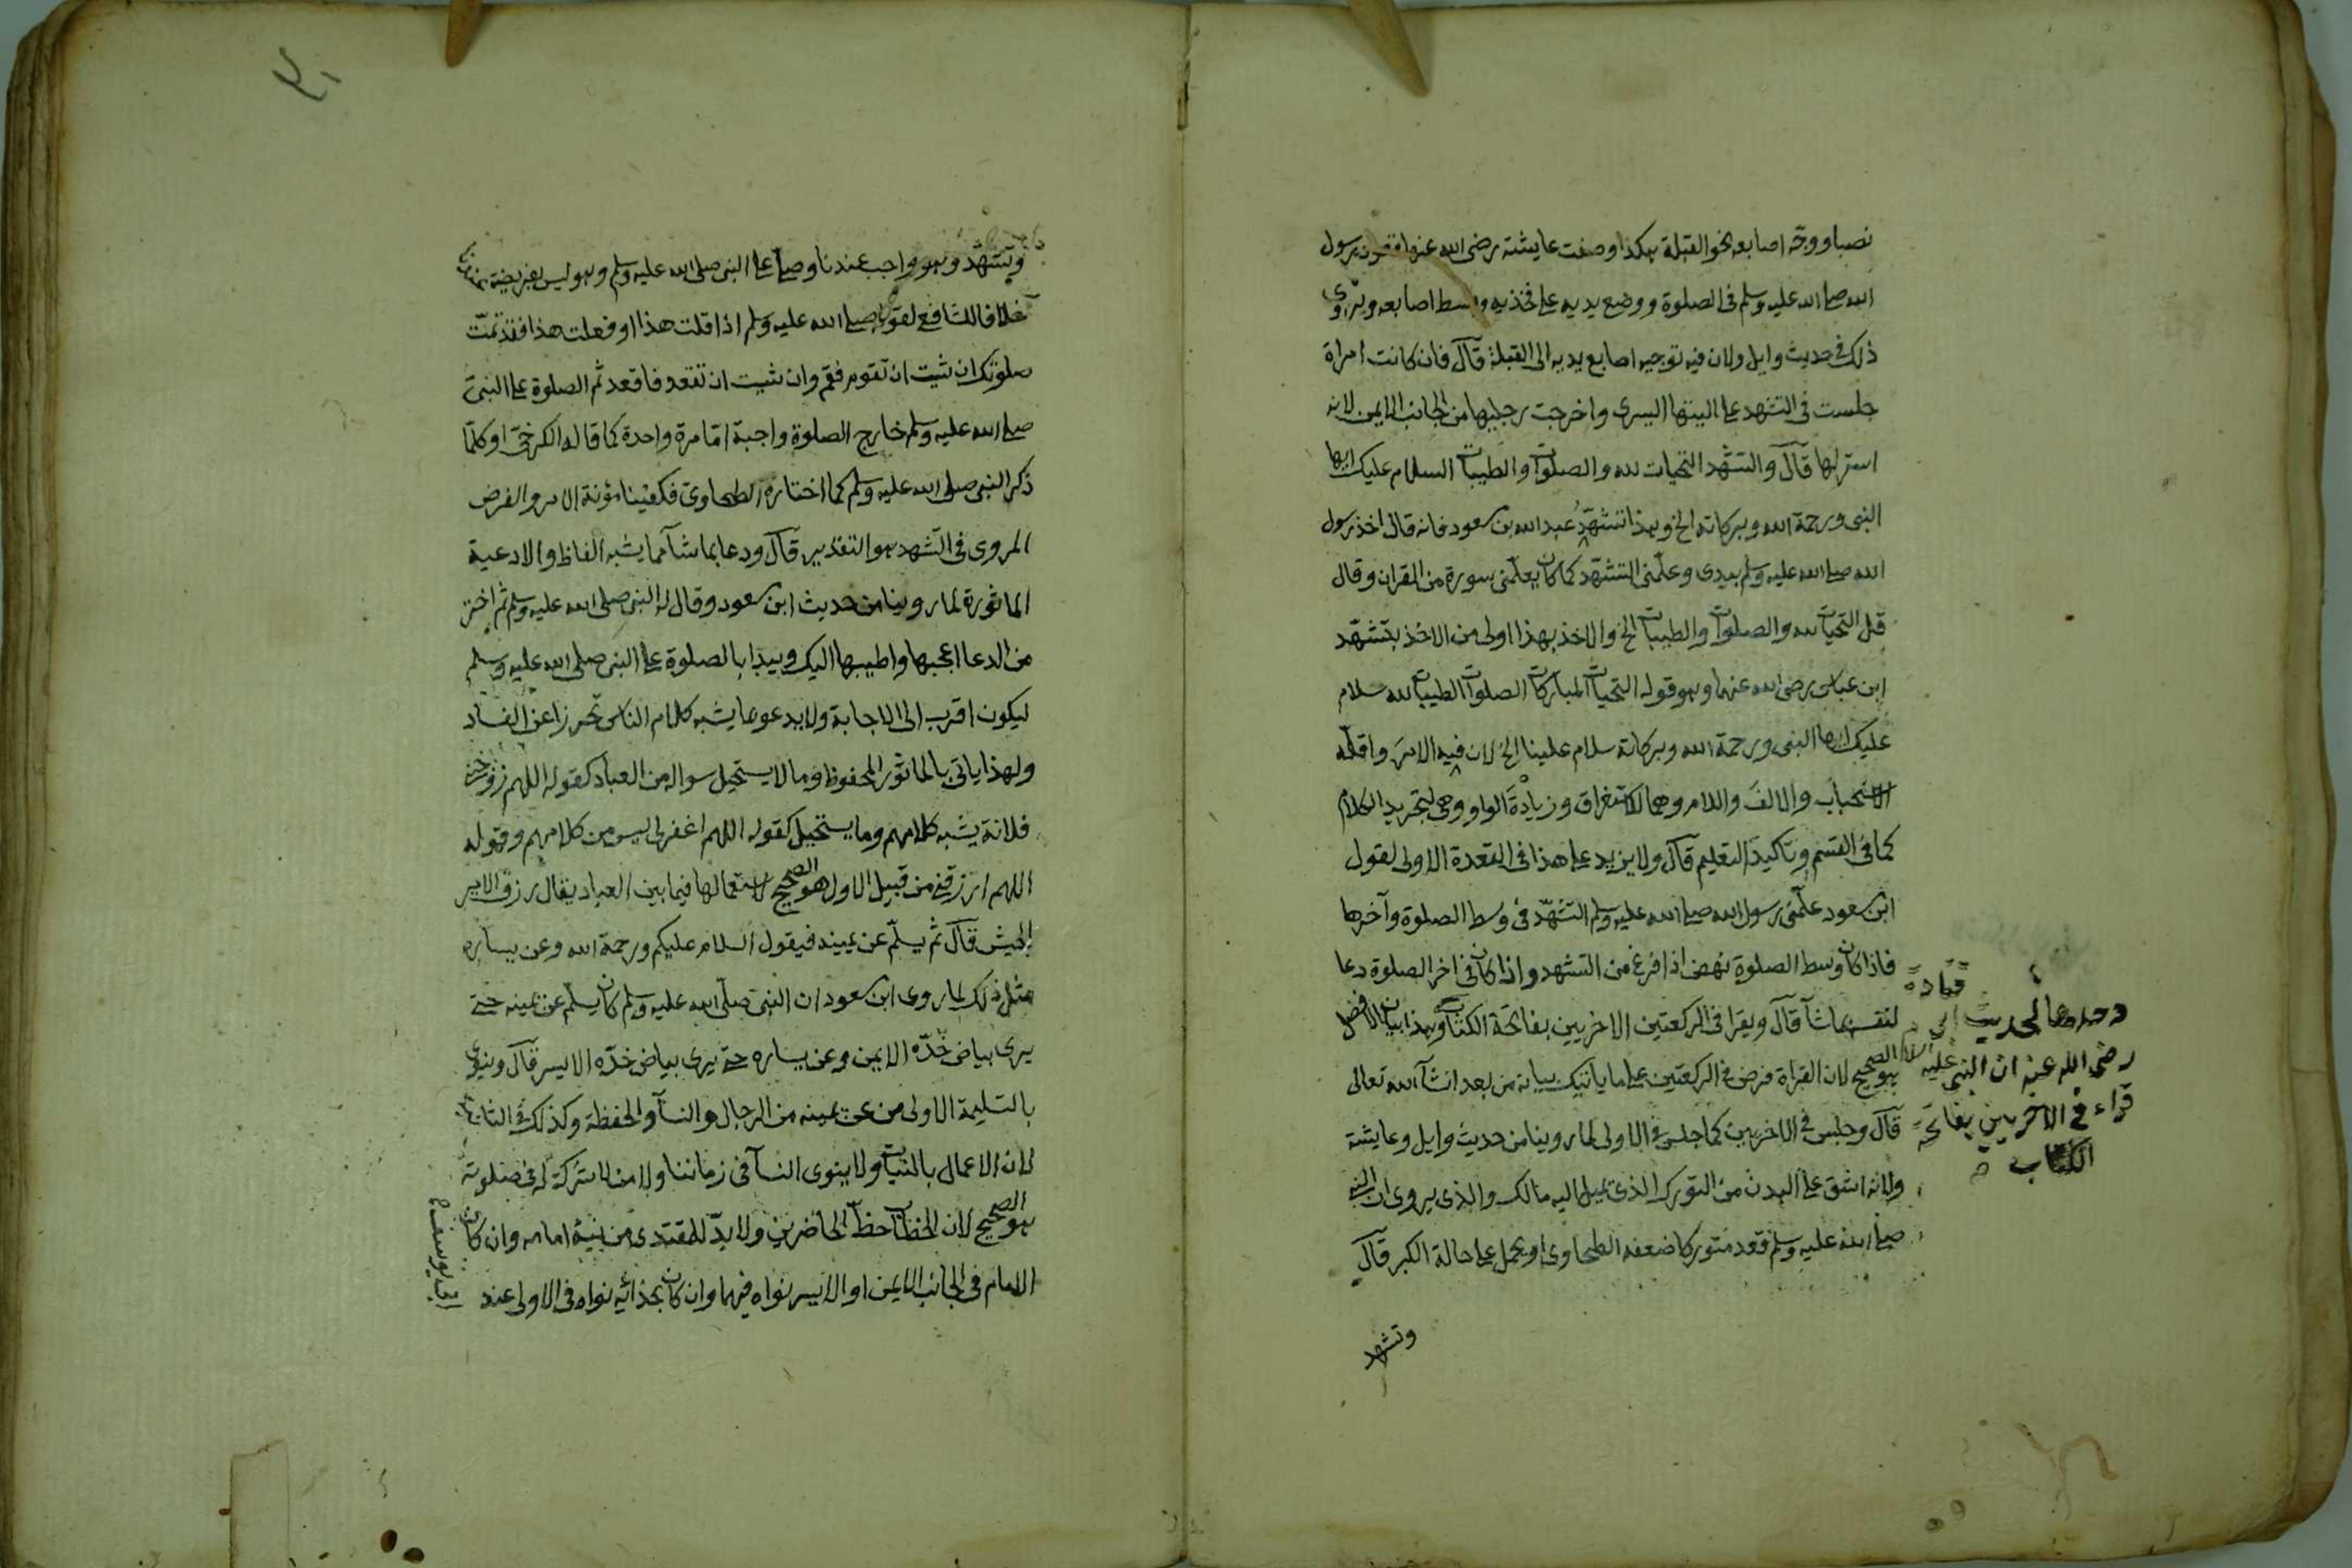 نصبا ووجّه اصابعه نحو القبلة هكذا وصفت عايشة رضى الله عنها قعود رسول
الله صلى الله عليه وسلم فى الصلوة ووضع يديه على فخذيه وبسط اصابعه ويُروى
ذلك فى حديث وايل ولان فيه توجيه اصابع يديه الى القبلة قآل فان كانت امراة
جلست فى التشهد على اليتها اليسرى واخرجت رجليها من الجانب الايمن لانه
استر لها قآل والتشهّد التحيات لله والصلوات والطيبات السلام عليك ايها
النبى ورحمة الله وبركاته الخ وهذا تشهّد عبد الله بن مسعود فانه قال اخذ رسول
الله صلى الله عليه وسلم بيدى وعلّمنى التشهّد كما كان يعلّمنى سورة من القران وقال
قل التحيات لله والصلوات والطيبات الخ والاخذ بهذا اولى من الاخذ بتشهّد
ابن عباس رضى الله عنهما وهو قوله التحيات المباركات الصلوات الطيبات لله سلام
عليك ايها النبى ورحمة الله وبركاته سلام علينا الخ لان فيه الامرَ واقلّه
الاستحباب والالفَ واللام وهما للاستغراق وزيادةَ الواو وهى لتجريد الكلام
كما فى القسم وتاكيدَ التعليم قآل ولا يزيد على هذا فى القعدة الاولى لقول
ابن مسعود علّمنى رسول الله صلى الله عليه وسلم التشهّد فى وسط الصلوة وآخرها
فاذا كان وسط الصلوة نهض اذا فرغ من التشهد واذا كان فى اخر الصلوة دعا
لنفسه بماشآ قآل ويقرا فى الركعتين الاخريين بفاتحة الكتاب وهذا بيان الافضل
هو الصحيح لان القراة فرض فى الركعتين على ما ياتيك بيانه من بعد انشآ الله تعالى
قآل وجلس فى الاخريين كما جلس فى الاولى لما روينا من حديث وايل وعايشة
ولانه اشق على البدن من التورك الذى يميل اليه مالك والذى يروى ان النبى
صلى الله عليه وسلم قعد متوركا ضعفه الطحاوى او يحمل على حالة الكبر قآل
وتشهد
لحديث ابى قتادة
رضى الله عنه ان النبى عليه السلام
قراء فى الاخريين بفاتحة
الكتاب
وتشهّد وهو واجب عندنا وصلّى على النبى صلى الله عليه وسلم وهو ليس بفريضة عندنا
خلافا للشافعى لقوله صلى الله عليه وسلم اذا قلت هذا او فعلت هذا فقد تمّت
صلوتك ان شيت ان تقوم فقم وان شيت ان تقعد فاقعد ثم الصلوة على النبى
صلى الله عليه وسلم خارج الصلوة واجبة امّا مرة واحدة كما قاله الكرخى او كلّما
ذكر النبى صلى الله عليه وسلم كما اختاره الطحاوى فكفينا مؤنة الامر والفرض
المروى فى التشهد هو التقدير قآل ودعا بما شآ مما يشبه الفاظ والادعية
الماثورة لما روينا من حديث ابن مسعود وقال له النبى صلى الله عليه وسلم ثم اختر
من الدعا اعجبها واطيبها اليك ويبدا بالصلوة على النبى صلى الله عليه وسلم
ليكون اقرب الى الاجابة ولا يدعو بما يشبه كلام الناس تحرزا عن الفساد
ولهذا ياتى بالماثور المحفوظ وما لا يستحيل سواله من العباد كقوله اللهم زوّجنى
فلانة يشبه كلامهم وما يستحيل كقوله اللهم اغفر لى ليس من كلامهم وقوله
اللهم ارزقنى من قبيل الاول هو الصحيح لاستعمالها فيما بين العباد يقال رزق الامير
الجيش قآل ثم يسلّم عن يمينه فيقول السلام عليكم ورحمة الله وعن يساره
مثل ذلك لما روى ابن مسعود ان النبى صلّى الله عليه وسلم كان يسلّم عن يمينه حتى
يرى بياض خدّه الايمن وعن يساره حتى يرى بياض خدّه الايسر قآل وينوى
بالتسليمة الاولى من عن يمينه من الرجال والنسآ والحفظة وكذلك فى الثانية
لان الاعمال بالنيات ولا ينوى النسآ فى زماننا ولا من لا شركة له فى صلوته
هو الصحيح لان الخطاب حظّ الحاضرين ولا بدّ للمقتدى من نية امامه وان كان
الامام فى الجانب الايمن او الايسر نواه فيهما وان كان بحذائه نواه فى الاولى عند
ابى يوسف